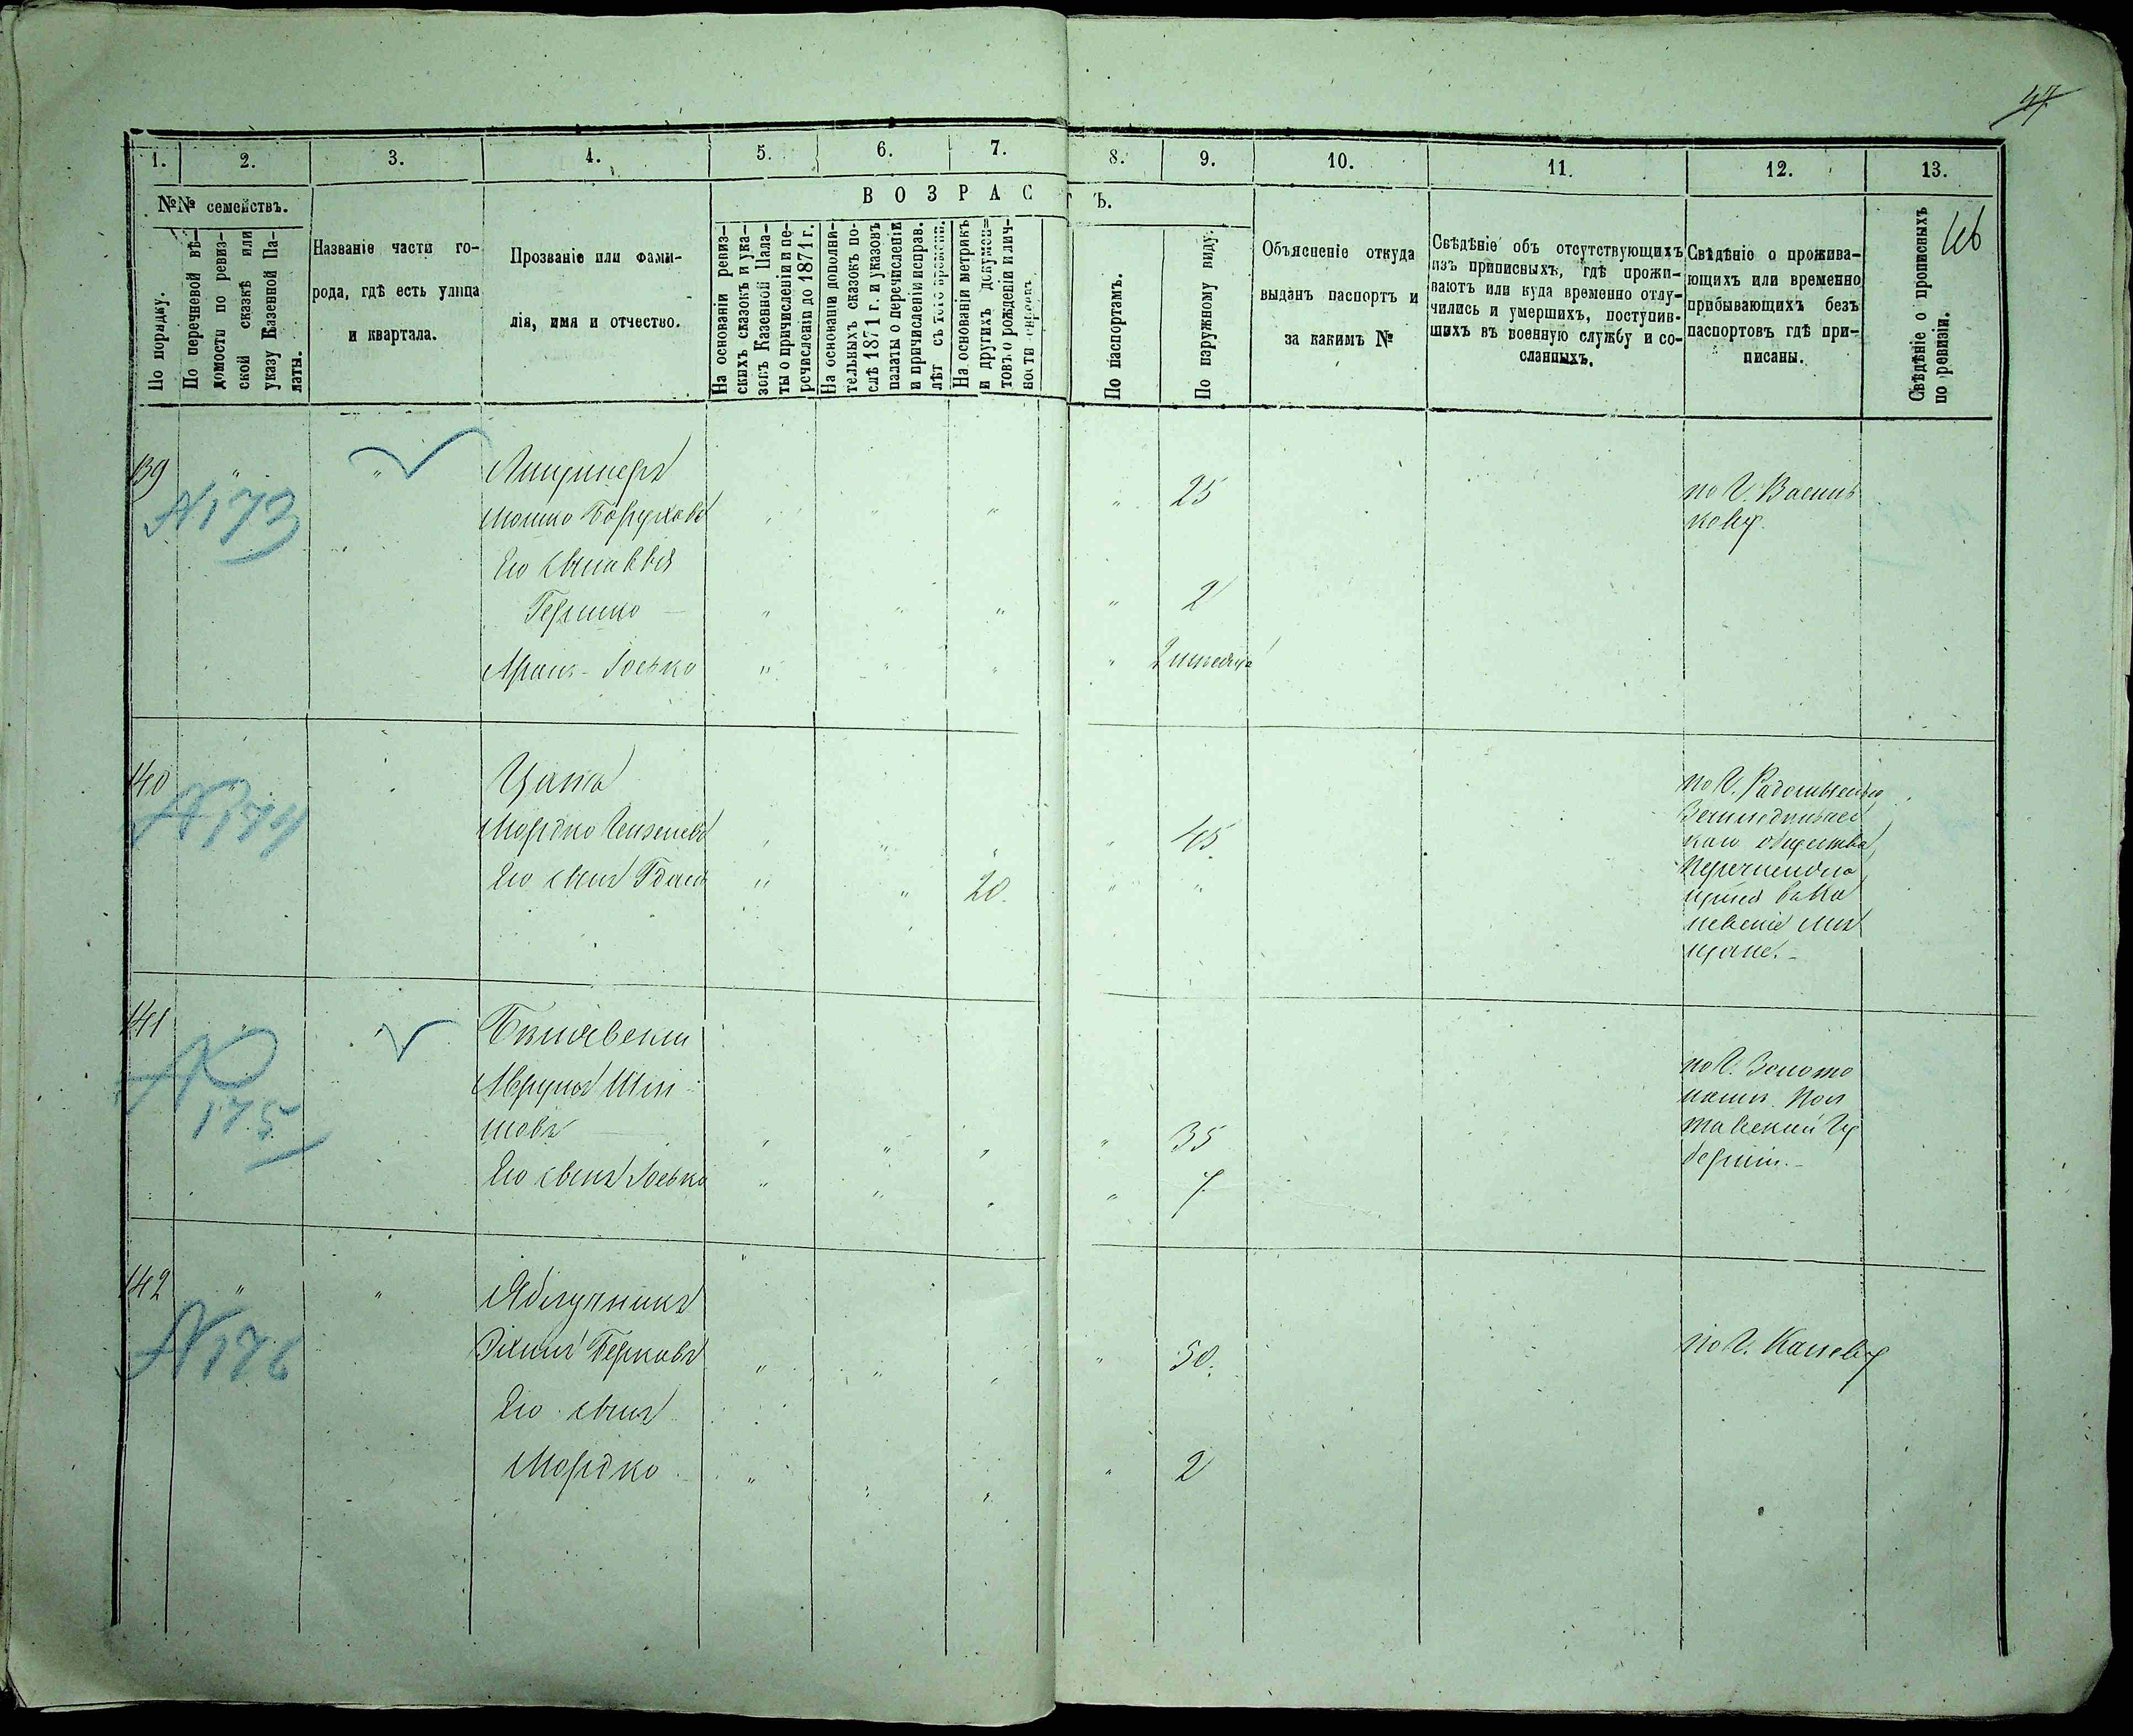 47
1. 2. 3. 4. 5. 6. 7. 8. 9. 10. 11. 12. 13.
№№ семействъ.
По порядку.
По перечневой вѣ-
домости по ревиз-
ской сказкѣ или
указу Казенной Па-
латы.
Названіе части го-
рода, гдѣ есть улица
и квартала.
Прозваніе или фами-
лія, имя и отчество.
ВОЗРАСТЪ.
На основаніи ревиз-
скихъ сказокъ и ука-
зовъ Казенной Пала-
ты о причисленіи и пе-
речисленіи до 1871 г.
На основаніи дополни-
тельныхъ сказокъ по-
слѣ 1871 г. и указовъ
палаты о перечисленіи
и причисленіи исправ.
лѣт съ того времени.
На основаніи метрикъ
и другихъ докумен-
товъ о рожденіи и лич-
ности евреевъ
По паспортамъ.
По наружному виду.
Объясненіе откуда
выданъ паспортъ и
за какимъ №
Свѣдѣніе объ отсутствующихъ
изъ приписныхъ, гдѣ прожи-
ваютъ или куда временно отлу-
чились и умершихъ, поступив-
шихъ въ военную службу и со-
сланныхъ.
Свѣдѣніе о прожива-
ющихъ или временно
прибывающихъ безъ
паспортовъ гдѣ при-
писаны.
Свѣдѣніе о прописныхъ
по ревизіи.
46
139 " "
N 173
Мошко Боруховъ " " " " 25
Его сыновья
Гершко — " " " " 2
Аронъ-Іосько " " " " 2 мѣсяца
по Г. Василь
кову.
140
N 174
Мордко " " " " 45
Его сынъ " " 20. " "
по Г.
каго общества,
невскіе мѣ
щане. -
141
N 175
Аврумъ
Его сынъ Іосько " " " " 7
35
по Г. Золото
ношѣ Пол
тавский Гу
берніи. -
142 " "
N 176
Яблучникъ
Берковъ " " " " 50.
Его сынъ
Мордко. " " " " 2
по Г. Каневу